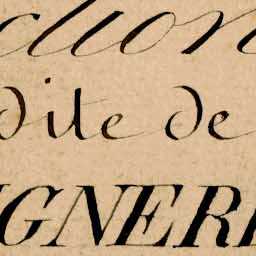 ction
dite de
IGNERE